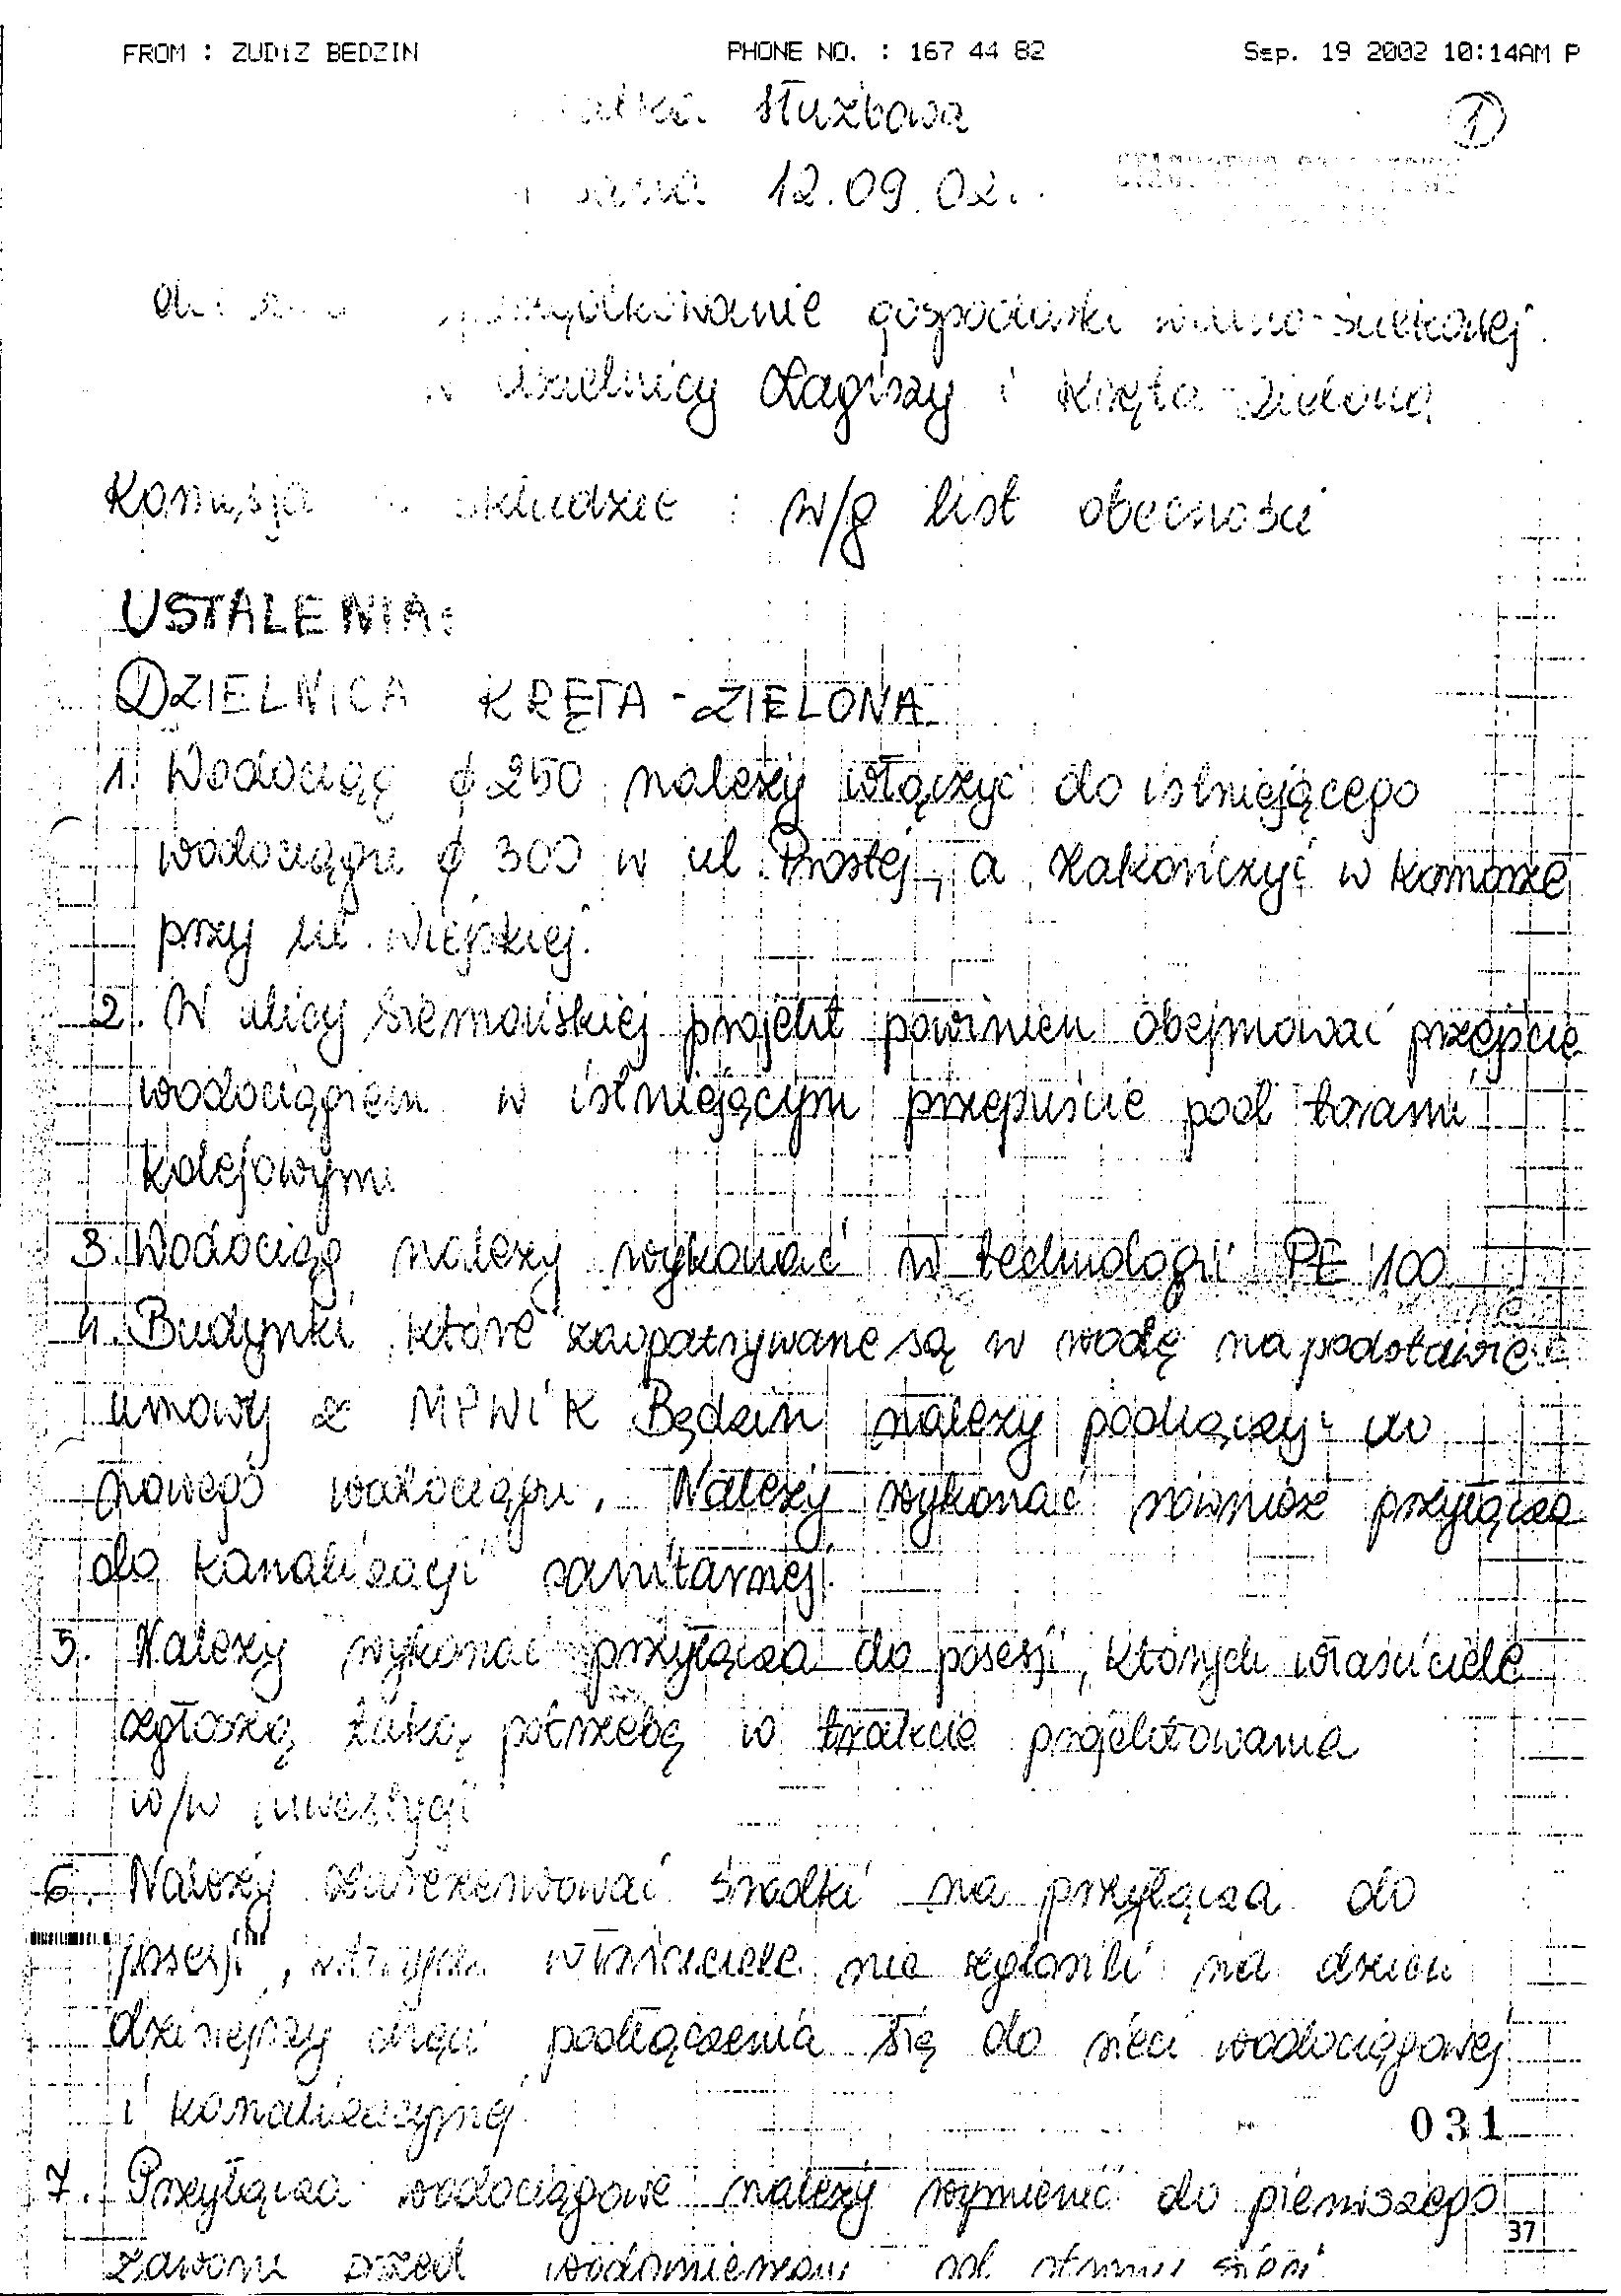 FROM : ZUDiZ BEDZIN PHONE NO. : 167 44 82 Sep. 19 2002 10:14AM P
służbowa 1
12.09.02.
gospodarki wodno-ściekowej
w dzielnicy Łagiszy i Kręta-Zielona
Komisja w składzie : w/g list obecności
USTALENIA:
DZIELNICA KRĘTA - ZIELONA
1. Wodociąg ϕ 250 należy włączyć do istniejącego
wodociągu ϕ 300 w ul. Prostej, a zakończyć w komorze
przy ul. Wiejskiej.
2. W ulicy Siemońskiej projekt powinien obejmować przejście
wodociągiem w istniejącym przepuście pod torami
kolejowymi
3. Wodociąg należy wykonać w technologii PE 100
4. Budynki które zaopatrywane są w wodę na podstawie
umowy z MPWiK Będzin należy podłączyć do
nowego wodociągu. Należy wykonać również przyłącza
do kanalizacji sanitarnej.
5. Należy wykonać przyłącza do posesji, których właściciele
zgłoszą taką potrzebę w trakcie projektowania
w/w inwestycji
6. Należy zarezerwować środki na przyłącza do
posesji, których właściciele nie zgłosili na dzień
dzisiejszy chęci podłączenia się do sieci wodociągowej
i kanalizacyjnej
031
7. Przyłącza wodociągowe należy wymienić do pierwszego
37
zaworu przed wodomierzem od strony sieci.